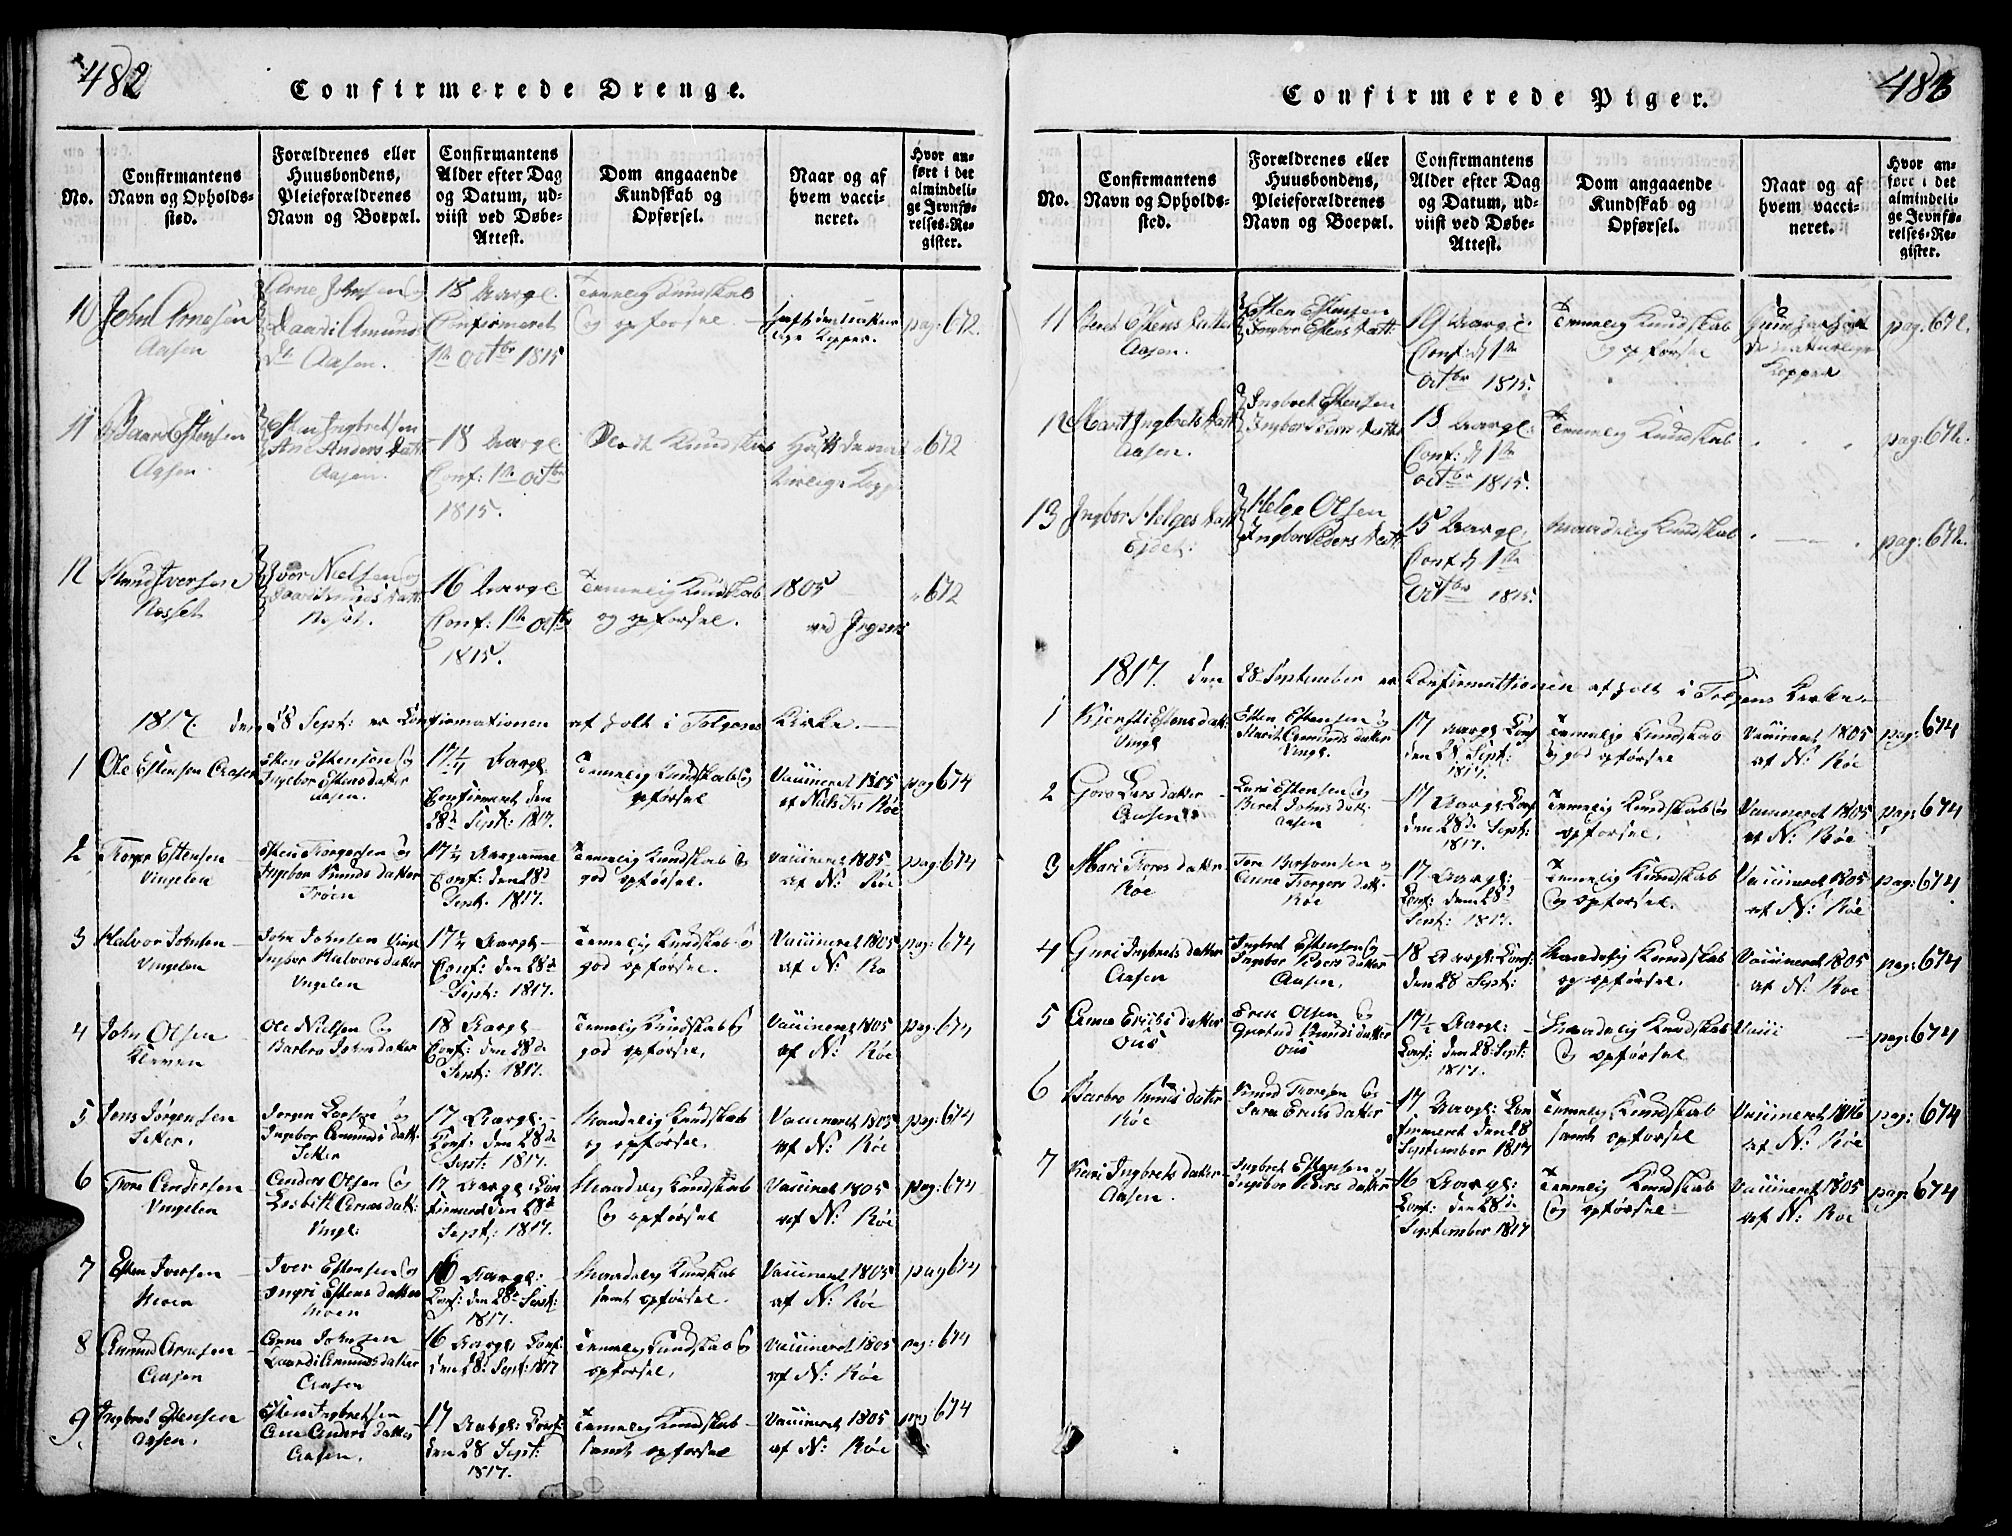 482
Confirmerede Drenge.
No.
Confirmantens
Navn og Opholds-
sted.
Forældrenes eller
Huusbondens,
Pleieforældrenes
Navn og Boepæl.
Confirmantens
Alder efter Dag
og Datum, ud-
viist ved Døbe-
Attest.
Dom angaaende
Kundskab og
Opførsel.
Naar og af
hvem vacci-
neret.
Hvor an-
ført i det
almindeli-
ge Jevnfø-
relses-Re-
gister.
10
John Arnesen
Aasen
Arne Johnsen og
Amunds
Dtr Aasen.
18 Aargl.
Confirmeret
1te Octbr 1815
Temmelig Kundskab
og opførsel
pag: 672.
11
Baard Estensen
Aasen.
Esten Ingbretsen
Ane Anders Datt
Aasen.
18 Aargl
Conf: 1te Octbr
1815.
Kundskab
672
12
Knud Iversen
Nosset
Iver Nielsen og
Knuds Datt
16 Aargl
Conf: 1te Octbr
1815.
Temmelig Kundskab
og opførsel.
1805
ved
672
1817. den 28 Sept: er Confirmationen af holt i Tolgens Kirke.
1
Ole Estensen Aasen
Esten Estensen og
Ingebor Estens datter
Aasen.
17 1/4 Aargl:
Confirmeret den
28de Sept: 1817.
Temmelig Kundskab og
opførsel
Vaccineret 1805
af Røe
pag 674
2
Estensen
Vingelen
Esten Torgersen og
Ingebor Knuds datter
Trøen
17 1/4 Aargammel
Conf: den 28de
Sept. 1817.
Temmelig Kundskab og
god opførsel.
Vaccineret 1805
af N: Røe
pag: 674
3
Halvor Johnsen
Vingelen
John Johnsen Vingl
Ingbor Halvors datter
Vngelen
17 1/4 Aargl
Conf: den 28de
Sept: 1817.
Temmelig Kundskab og
god opførsel.
Vaccineret 1805
af N: Rø
pag: 674
4
John Olsen
Kleven
Ole Nielsen og
Barbro Johns datter
18 Aargl
Conf: den 28de
Sept: 1817.
Temmelig Kundskab og
god opførsel,
Vaccineret 1805
af N: Røe
pag: 674
5
Jens Jørgensen
Setter,
Jørgen Larsen og
Ingebor Amunds datt.
Setter
17 Aargl:
Conf: den 28de
Sept: 1817.
Maadelig Kundskab
og opførsel.
Vaccineret 1805
af N: Røe
pag: 674
6
Tore Andersen
Vingelen
Anders Olsen og
Lisbeth Arnes datt:
Vingl:
17 Aargl: Con
firmeret den 28de
Sept: 1817.
Maadelig Kundskab
og opførsel
Vaccineret 1805
af N: Røe
pag: 674
7
Esten Iversen
Moen
Iver Estensen og
Ingri Estens datter
Moen
16 Aargl:
Conf: den 28de Sept:
1817.
Maadelig Kundskab
samt opførsel.
Vaccineret 1805
af N: Røe
pag 674
8
Amund Arnesen
Aasen
Arne Johnsen
Amunds datter
Aasen
16 Aargl: Conf:
den 28de Sept: 1817
Temmelig Kundskab og
opførsel,
Vaccineret 1805
af N: Røe
pag: 674
9.
Ingbret Estensen
Aasen.
Esten Ingbretsen
Ane Anders datter
Aasen.
17 Aargl: Conf:
den 28 Sept:
1817.
Temmelig Kundskab
samt opførsel
Vaccineret 1805
af N: Røe
pag 674
483
Confirmerede Piger.
No.
Confirmantens
Navn og Opholds-
sted.
Forældrenes eller
Huusbondens,
Pleieforældrenes
Navn og Boepæl.
Confirmantens
Alder efter Dag
og Datum, ud-
viist ved Døbe-
Attest.
Dom angaaende
Kundskab og
Opførsel.
Naar og af
hvem vacci-
neret.
Hvor an-
ført i det
almindeli-
ge Jevnfø-
relses-Re-
gister.
11
Beret Estens Datter
Aasen.
Esten Estensen
Ingbor Estens Datt
19 Aargl.
Conf: d 1te
Octbr 1815.
Temmelig Kundskab
og opførsel
de naturlige
Kopper
pag. 672.
12
Marit Ingbrets Datt
Aasen.
Ingbret Estensen
Ingbor Peders Datter
Aargl:
Conf: d 1te
Octbr 1815.
Temmelig Kundskab
pag: 672.
13
Ingbor Helges Datt
Eidet:
Helge Olsen
Ingbor Peders Datt
15 Aargl:
Conf d 1te
Octbr 1815.
Maadelig Kundskab
pag: 672.
1817. den 28de September er Konfirmationen af holt i Tolgens Kirke
1
Kjersti Estens datt:
Vingl
Esten Estensen og
Marit Amunds datter
Vingl.
17 Aargl: Conf
den 28 Sept:
1817.
Temmelig Kundskab
og god opførsel
Vaccineret 1805
af N: Røe
pag: 674
2
Goro Lars datter
Aasen
Lars Estensen og
Beret Johns datt:
Aasen
17 Aargl: Conf
den 28de Sept:
1817.
Temmelig Kundskab og
opførsel.
Vaccineret 1805
af N: Røe
pag: 674
3
Mari Tores datter
Røe
Tore Bersvensen og
Anne Torgers datt.
Røe
17 Aargl:
Conf: den 28de
Sept: 1817.
Temmelig Kundskab
og opførsel.
Vaccineret 1805
af N: Røe
pag: 674
4
Guri Ingbrets datter
Aasen
Ingbret Estensen og
Ingebor Peders datter
Aasen.
18 Aargl: Conf:
den 28 Sept:
Maadelig Kundskab
og opførsel.
Vaccineret 1805
af N: Røe
pag: 674
5
Anne Erichs datter
Ous
Erik Olsen og
Gjertrud Knuds datter
Ous
17 1/2 Aargl:
Conf: den 28 Sept:
1817.
Maadelig Kundskab
og opførsel
Vacci
pag: 674
6
Barbro Knuds datter
Røe
Knud Toresen og
Sara Erichs datter
17 Aargl: Con
firmeret den 28
September 1817
Temmelig Kundskab
samt opførsel
Vaccineret 1816
af N: Røe
pag: 674
7
Kari Ingbrets datter
Aasen.
Ingbret Estensen og
Ingebor Peders datter
16 Aargl:
Conf: den 28de
September 1817
Temmelig Kundskab
og opførsel
Vaccineret 1805
af N: Røe
pag: 674